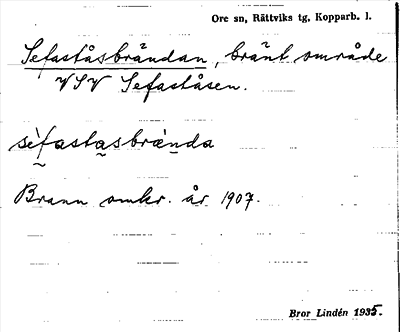 Ore sn, Rättviks tg, Kopparb. l.
Sefaståsbrändan, bränt område
VSV Sefaståsen.
sèfastasbræ̀nda
Brann omkr. år 1907.
Bror Lindén 1935.